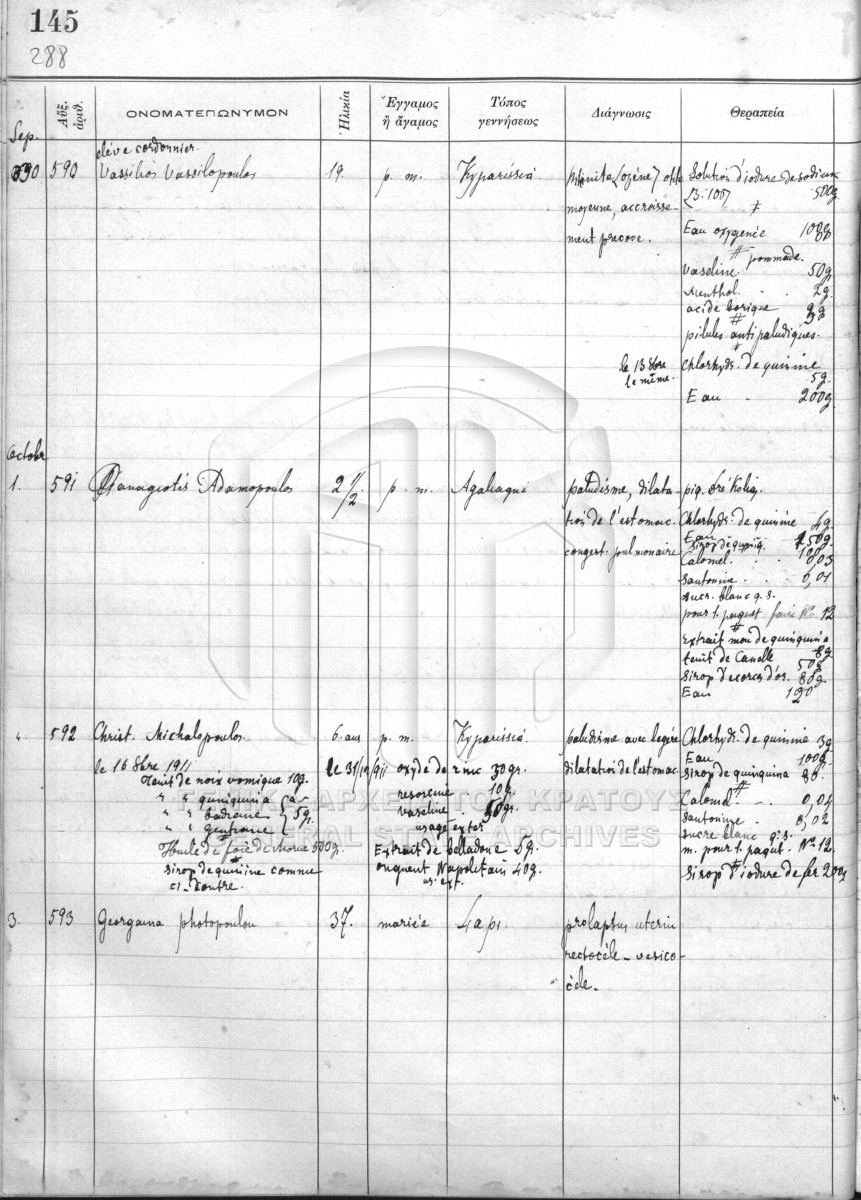 145
288
Αὔξ. ἀριθ.
ΟΝΟΜΑΤΕΠΩΝΥΜΟΝ
Ἡλικία
Ἔγγαμος ἢ ἄγαμος
Τόπος γεννήσεως
Διάγνωσις
Θεραπεία
Sep.
élève cordonnier.
30 590 Vassilios Vassilopoulos 19. p. m. Kyparissia
(ozène) otite
moyenne, accroisse-
ment precoce.
Solution d'iodure de sodium
(3:100) 500g
Eau oxygenée 100g
# pommade.
Vaseline. 50g
Menthol. 2g.
acide borique 3g
#
pilules antipaludiques.
le 13 8bre
le même.
Chlorhydr. de quinine
5g.
Eau - 200g
Octobr
1. 591 Panagiotis Adamopoulos 2 1/2 p. m. Agaliani
paludisme, dilata-
tion de l'estomac.
congest. pulmonaire
piq.
Chlorhydr. de quinine 4g.
Eau 150g.
Sirop de quinq. 100
Calomel. 0,03
Santonine 0,01
sucr. blanc q. s.
pour 1. paquet faire No 12
#
Extrait mou de quinquina
8g
teint de Canelle 50g
Sirop d'ecorces d'or. 80g
Eau 120
592 Christ. Michalopoulos. 6 ans p. m. Kyparissia
paludisme avec legère
dilatation de l'estomac.
Chlorhydr. de quinine 3g
Eau 100g
Sirop de quinquina 80.
#
Calomel 0,04
Santonine 0,02
sucre blanc q. s.
m. pour 1. paqut. No 12.
#
Sirop d'iodure de fer 200g
le 16 8bre 1911
Teint de noix vomique 10g.
" " quinquina
" " badiane } 5g.
" " gentiane
Huile de foie de Morue 500g.
#
Sirop de quinine comme
ci-contre.
le 31/10/911 oxyde de zinc 30gr.
resorcine 10g.
vaseline. 50gr.
usage exter
Extrait de belladone 5g.
onguent Napolitain 40g.
us. ext.
3. 593 Georgaina photopoulou 37. mariée Lapi.
prolaptus uterin
rectocèle - vesico-
cèle.
ΓΕΝΙΚΑ ΑΡΧΕΙΑ ΤΟΥ ΚΡΑΤΟΥΣ
GENERAL STATE ARCHIVES